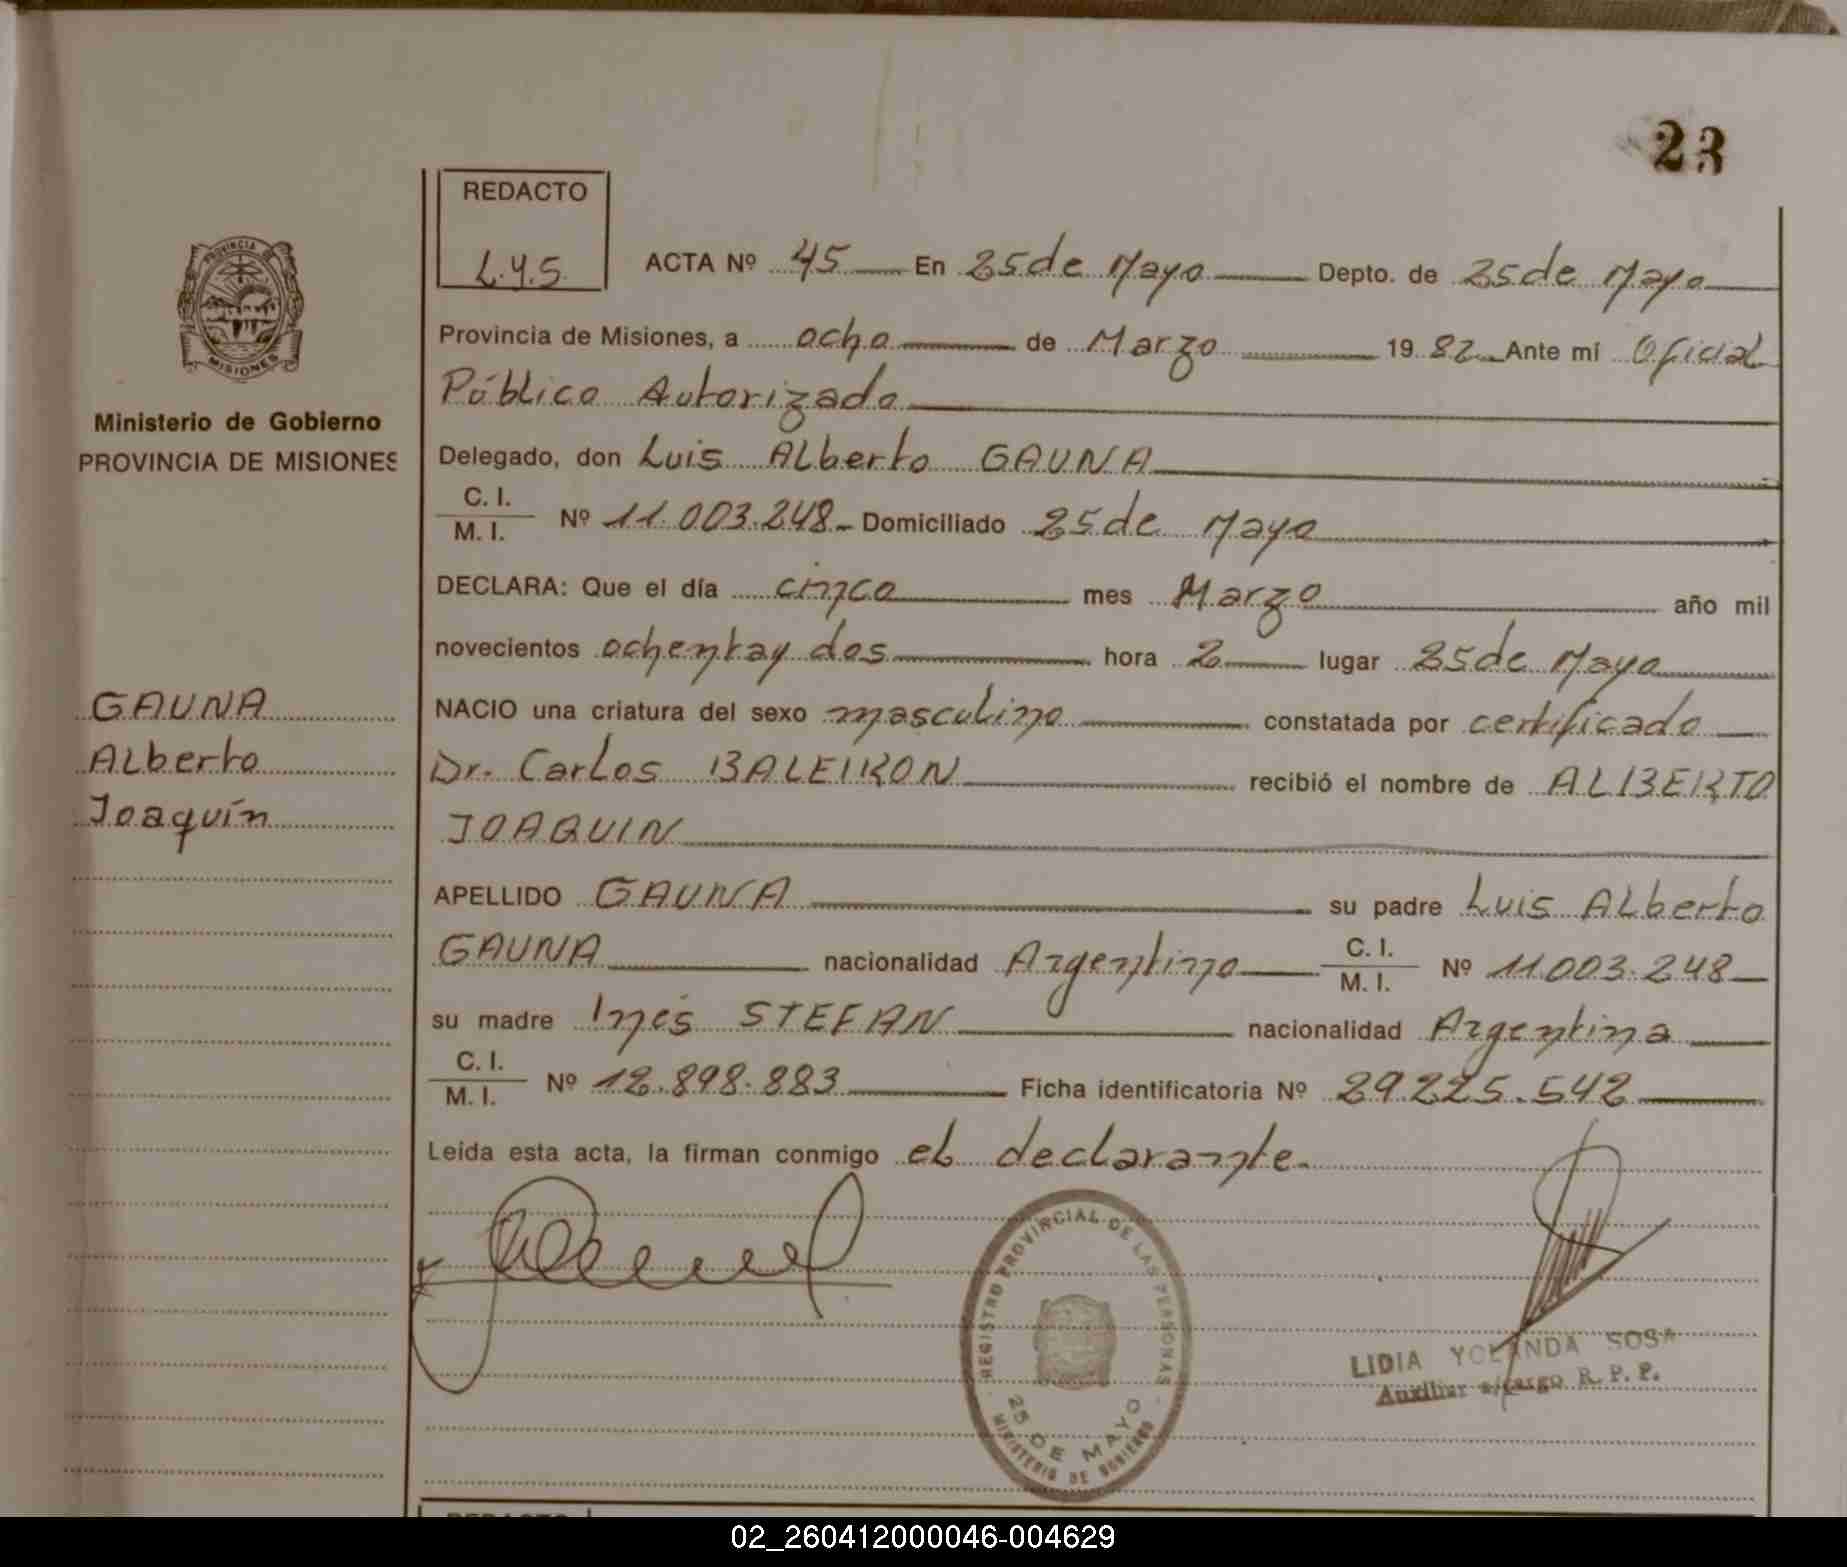 23
REDACTO
L.Y.S.
ACTA Nº 45 En 25 de Mayo Depto. de 25 de Mayo
Provincia de Misiones, a ocho de Marzo 19 82 Ante mí Oficial
Público Autorizado
Delegado, don Luis Alberto GAUNA
C. I.
M. I. Nº 11.003.248 Domiciliado 25 de Mayo
DECLARA: Que el día cinco mes Marzo año mil
novecientos ochenta y dos hora 2 lugar 25 de Mayo
NACIO una criatura del sexo masculino constatada por certificado
Dr. Carlos BALEIRON recibió el nombre de ALBERTO
JOAQUIN
APELLIDO GAUNA su padre Luis Alberto
GAUNA nacionalidad Argentino C. I. M. I. Nº 11.003.248
su madre Inés STEFAN nacionalidad Argentina
C. I.
M. I. Nº 12.898.883 Ficha identificatoria Nº 29.225.542
Leída esta acta, la firman conmigo el declarante.
PROVINCIA DE
MISIONES
Ministerio de Gobierno
PROVINCIA DE MISIONES
GAUNA
Alberto
Joaquín
REGISTRO PROVINCIAL DE LAS PERSONAS
25 DE MAYO
MINISTERIO DE GOBIERNO
LIDIA YOLANDA SOSA
Auxiliar a/cargo R. P. P.
REDACTO
02_260412000046-004629